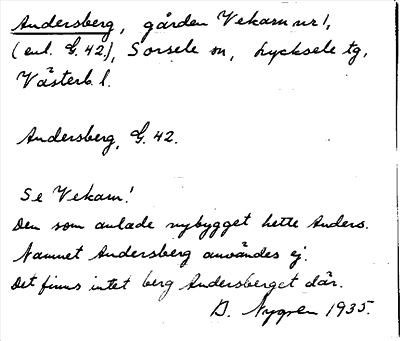 Andersberg, gården Vekarn nr 1,
(enl. G. 42), Sorsele sn, Lycksele tg,
Västerb. l.
Andersberg, G. 42.
Se Vekarn!
Den som anlade nybygget hette Anders.
Namnet Andersberg användes ej.
Det finns intet berg Andersberget där.
D. Nygren 1935.